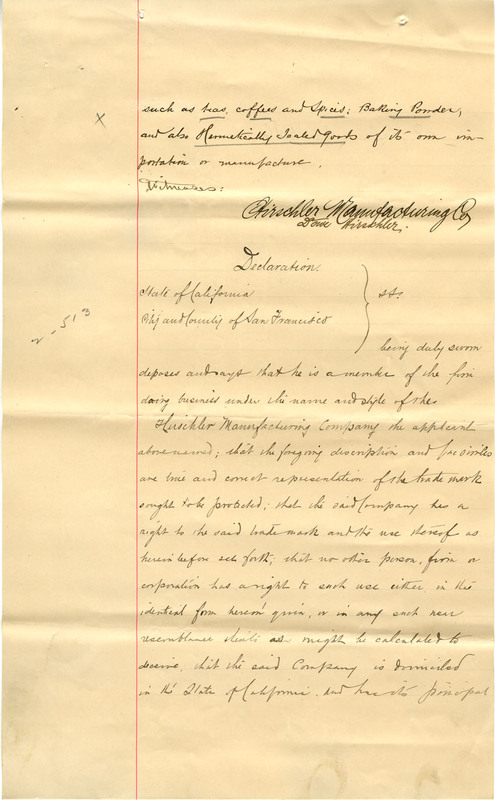 such as teas, coffees and Spices; Baking Powder,
X
and also Hermetically Sealed Goods of its own im-
portation or manufacture.
Witnesses:
Hirschler Manufacturing Co
Hirschler.
Declaration.
State of California
City and County of San Francisco
ss.
2-513
being duly sworn
deposes and says that he is a member of the firm
doing business under the name and style of the
Hirschler Manufacturing Company the applicant
above named; that the foregoing discription and facsimiles
are true and correct representation of the trade mark
sought to be protected; that the said Company has a
right to the said trade mark and the use thereof as
herein before set forth; that no other person, firm or
corporation has a right to such use either in the
identical form herein given, or in any such near
resemblance thereto as might be calculated to
deceive, that the said Company is domiciled
in the State of California, and has its principal